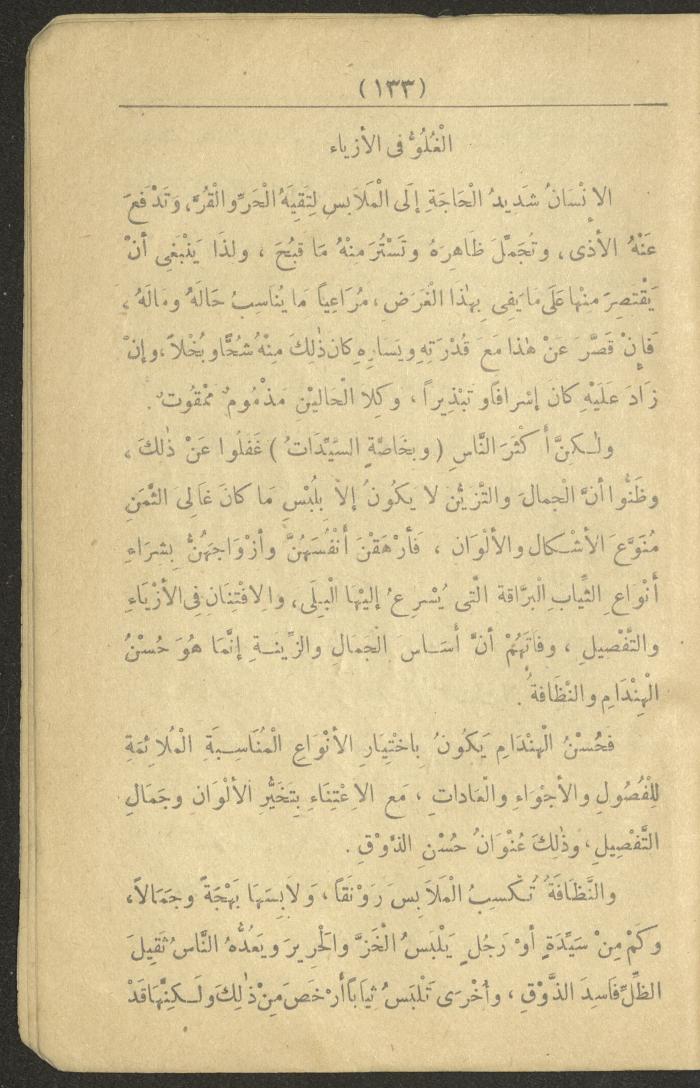 (١٣٣)
الْغُلُوُّ فى الأزياء
الإِنْسَانُ شَدِيدُ الْحَاجَةِ إِلَى الْمَلَابِسِ لِتَقِيَهُ الْحَرَّ والْقُرَّ، وَتَدْفَعَ
عَنْهُ الأَذى، وتُجَمِّلَ ظَاهِرَهُ وتَسْتُرَ مِنْهُ مَا قَبُحَ ، ولذَا يَنْبَغِى أنْ
يَقْتَصِرَ مِنْها عَلَى مَا يَفِى بِهٰذا الْغَرَضِ، مُرَاعِياً ما يُنَاسِبُ حَالَهُ ومَالَهُ،
فَإِنْ قَصَّرَ عَنْ هٰذا مَعَ قُدْرَتِهِ ويَسَارِهِ كان ذٰلِكَ مِنْهُ شُحًّا وبُخْلاً، وإِنْ
زَادَ عَلَيْهِ كان إِسْرافاً وتَبْذِيراً ، وكِلا الْحالَيْنِ مَذْمُومٌ مَمْقُوتٌ .
ولٰكِنَّ أَكْثَرَ النَّاسِ ( وبِخَاصَّةٍ السَّيِّدَاتُ ) غَفَلُوا عَنْ ذٰلِكَ ،
وظَنُّوا أنَّ الْجَمالَ والتَّزَيُّنَ لا يَكُونُ إِلاَّ بِلُبْسِ مَا كانَ غَالِىَ الثَّمَنِ
مُنَوَّعَ الأشْكالِ والألْوَانِ ، فَأَرْهَقْنَ أَنْفُسَهُنَّ وأزْوَاجَهُنَّ بِشِرَاءِ
أنْوَاعِ الثِّيابِ الْبَرَّاقة الَّتى يُسْرِعُ إِليْهَا الْبِلَى، والاِفْتِنَانِ فِى الأزْيَاءِ
والتَّفْصِيلِ ، وفاتَهُمْ أنَّ أَسَاسَ الْجَمَالِ والزِّينةِ إِنَّمَا هُوَ حُسْنُ
الْهِنْدَامِ والنَّظَافةُ .
فحُسْنُ الْهِنْدَامِ يَكُونُ بِاخْتِيَارِ الأنْوَاعِ الْمُنَاسِبَةِ الْمُلائِمَةِ
لِلْفُصُولِ والأجْوَاءِ والْعَادَاتِ ، مَع الاِعْتِنَاءِ بِتَخَيُّرِ الألْوَانِ وجَمَالِ
التَّفْصِيلِ، وذٰلِكَ عُنْوَانُ حُسْنِ الذَّوْقِ .
والنَّظَافَةُ تُكْسِبُ الْمَلَابِسَ رَوْنَقاً، وَلَابِسَهَا بَهْجَةً وجَمَالاً،
وكَمْ مِنْ سَيِّدَةٍ أوْ رَجُلٍ يَلْبَسُ الْخَزَّ والْحَرِيرَ ويَعُدُّهُ النَّاسُ ثَقِيلَ
الظِّلِّ فَاسِدَ الذَّوْقِ ، وأُخْرَى تَلْبَسُ ثِيَاباً أَرْخَصَ مِنْ ذٰلِكَ ولَـكِنَّهَا قَدْ